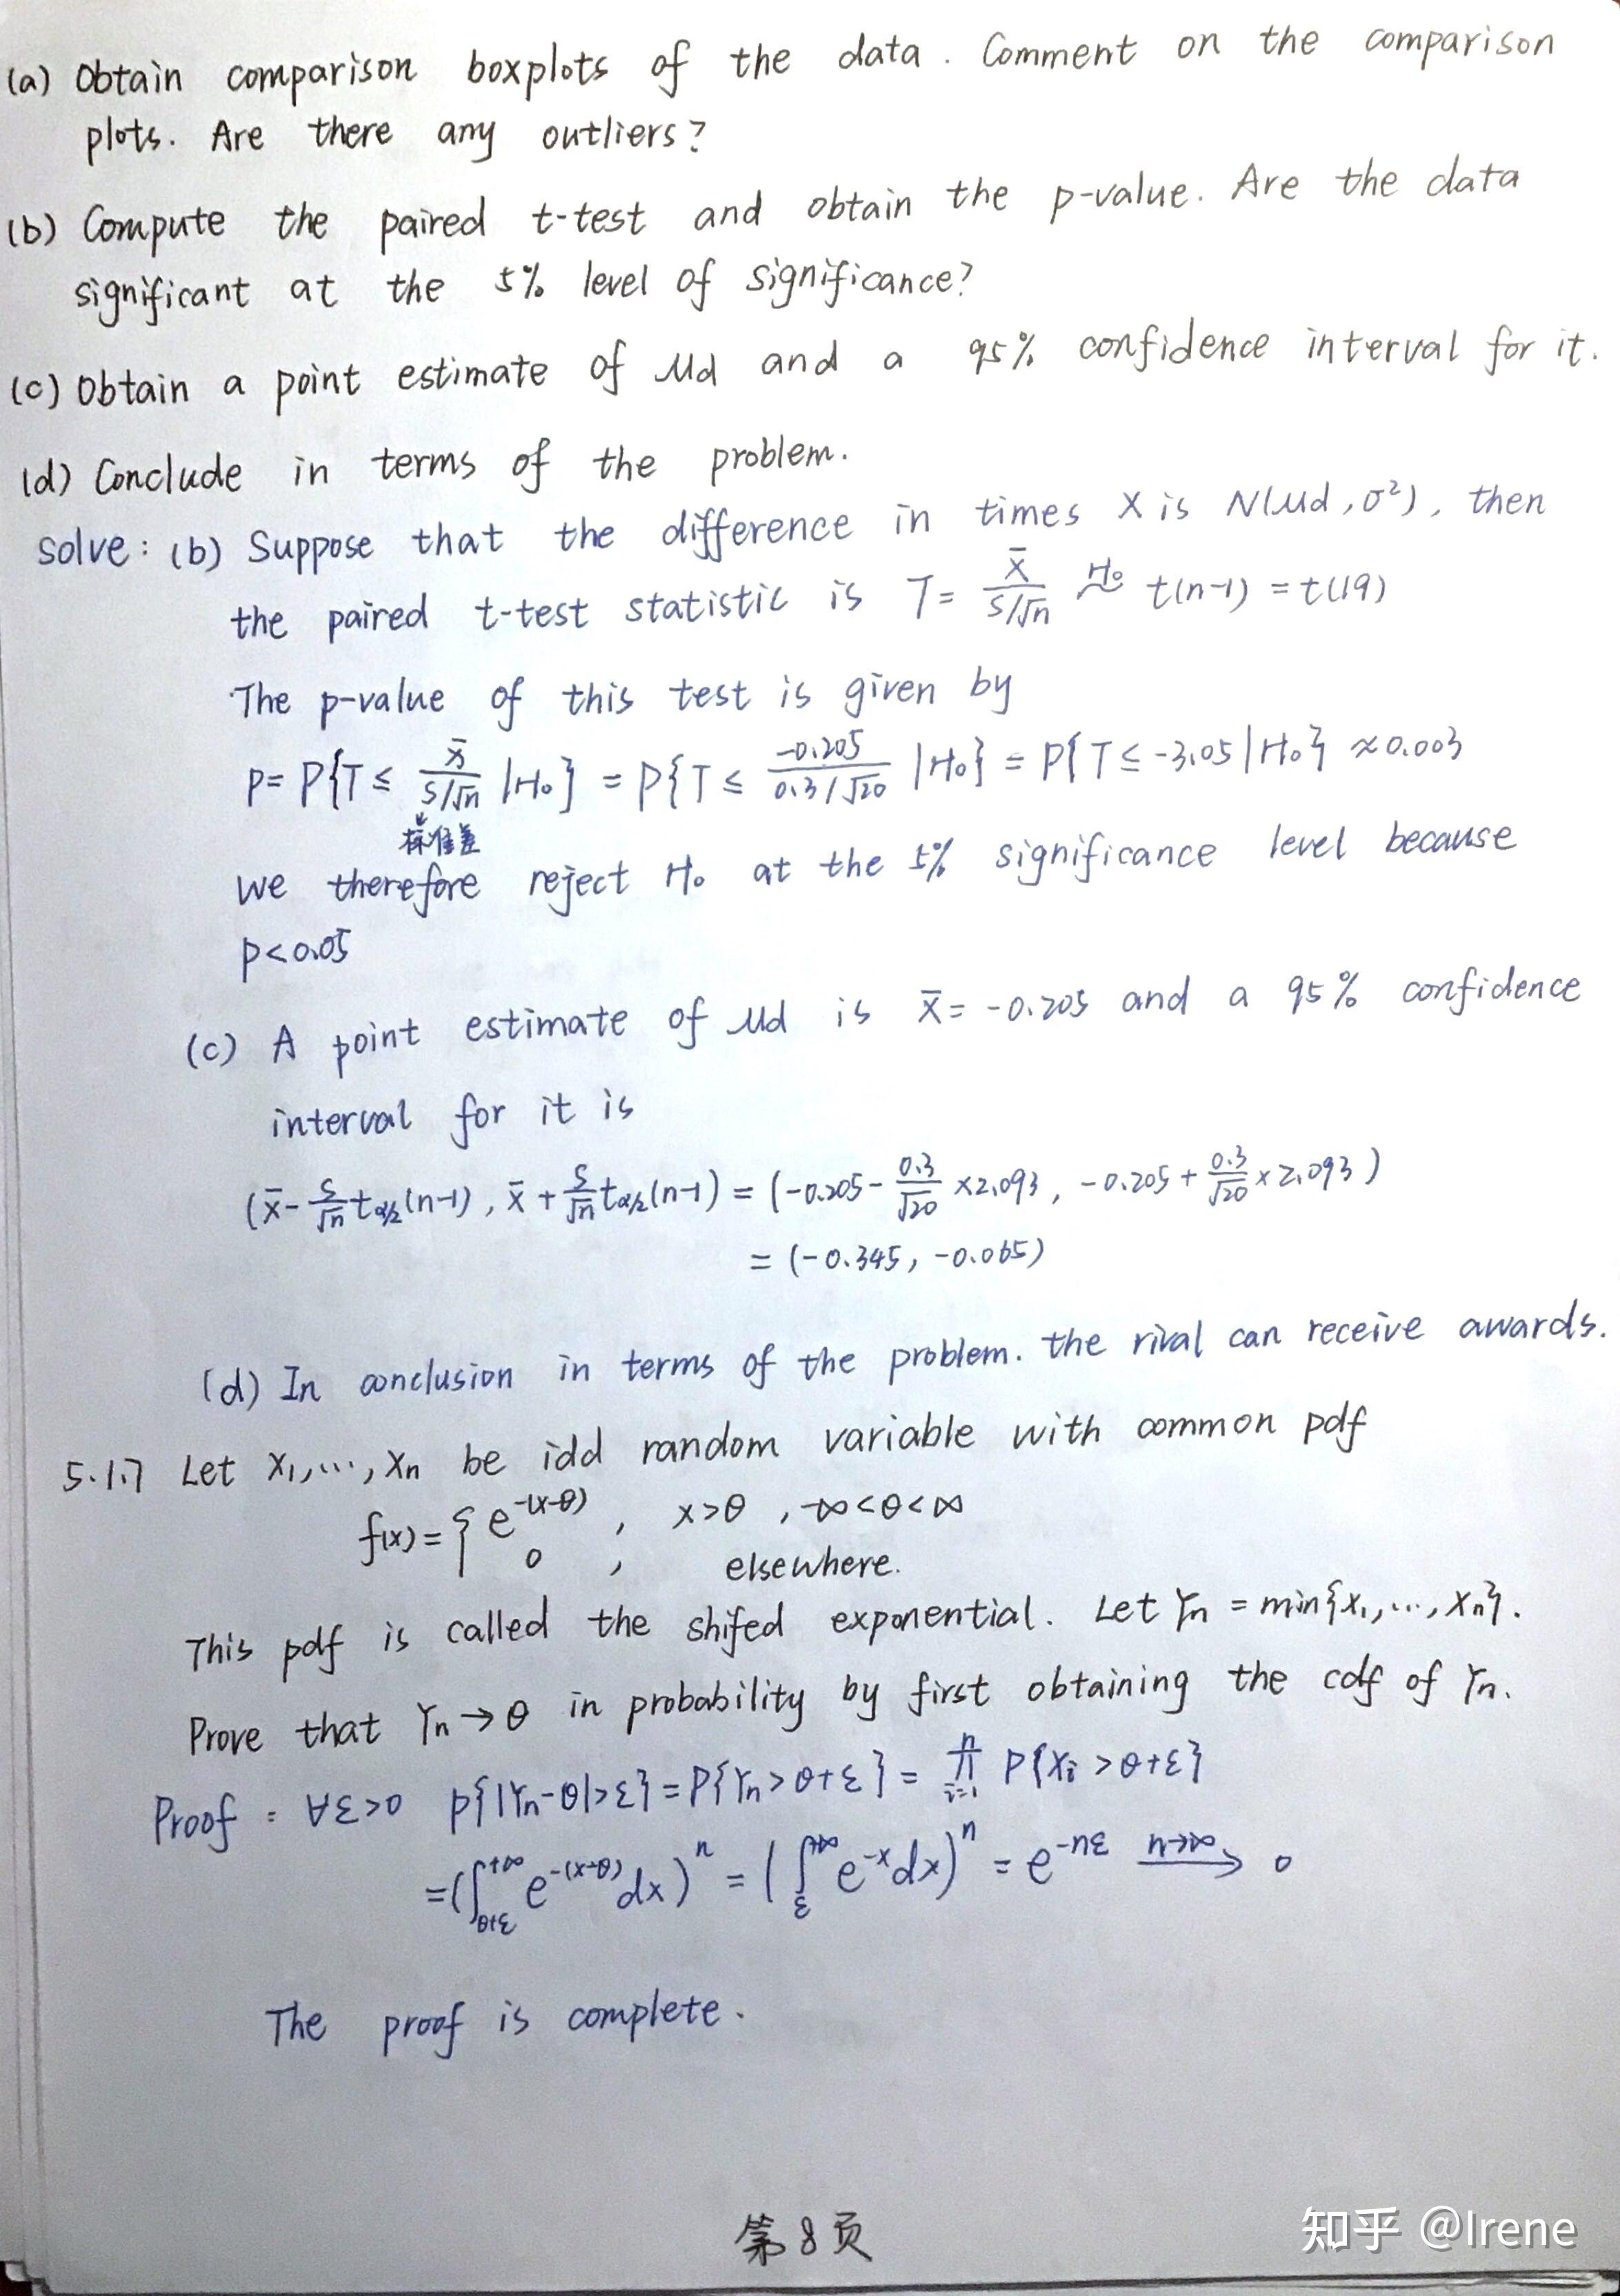 (a) Obtain comparison boxplots of the data. Comment on the comparison
plots. Are there any outliers?
(b) Compute the paired t-test and obtain the p-value. Are the data
significant at the 5% level of significance?
(c) Obtain a point estimate of μd and a 95% confidence interval for it.
(d) Conclude in terms of the problem.
solve: (b) Suppose that the difference in times X is N(μd, σ²), then
the paired t-test statistic is T = x̄/(s/√n) ~^{H₀} t(n-1) = t(19)
The p-value of this test is given by
p = P{T ≤ x̄/(s/√n) | H₀} = P{T ≤ -0.205/(0.3/√20) | H₀} = P{T ≤ -3.05 | H₀} ≈ 0.003
标准差
we therefore reject H₀ at the 5% significance level because
p<0.05
(c) A point estimate of μd is x̄ = -0.205 and a 95% confidence
interval for it is
(x̄ - s/√n t_{α/2}(n-1), x̄ + s/√n t_{α/2}(n-1)) = (-0.205 - 0.3/√20 × 2.093, -0.205 + 0.3/√20 × 2.093)
= (-0.345, -0.065)
(d) In conclusion in terms of the problem. the rival can receive awards.
5.1.7 Let X₁, ..., Xn be idd random variable with common pdf
f(x) = { e^{-(x-θ)}, x>θ, -∞<θ<∞
0, elsewhere.
This pdf is called the shifed exponential. Let Yn = min{X₁, ..., Xn}.
Prove that Yn → θ in probability by first obtaining the cdf of Yn.
Proof: ∀ε>0 P{|Yn-θ|>ε} = P{Yn>θ+ε} = ∏_{i=1}^{n} P{Xi>θ+ε}
= (∫_{θ+ε}^{+∞} e^{-(x-θ)}dx)^n = (∫_{ε}^{+∞} e^{-x}dx)^n = e^{-nε} —n→∞→ 0
The proof is complete.
第8页
知乎 @Irene